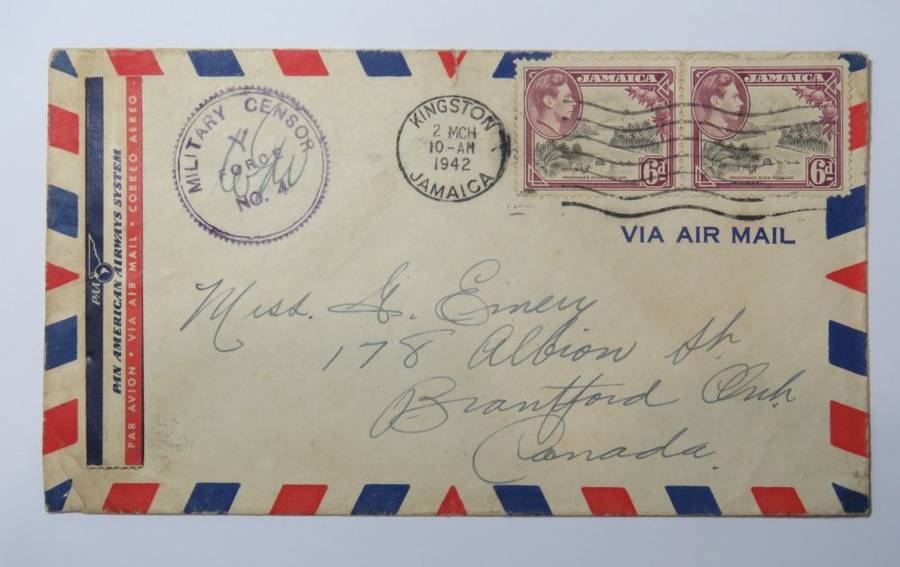 PAN AMERICAN AIRWAYS SYSTEM
PAA
PAR AVION · VIA AIR MAIL · CORREO AEREO
MILITARY CENSOR
FORCE
NO. 4
KINGSTON
2 MCH
10-AM
1942
JAMAICA
JAMAICA
6d
JAMAICA
6d
VIA AIR MAIL
Miss. G. Emery
178 Albion St.
Brantford Ont.
Canada.